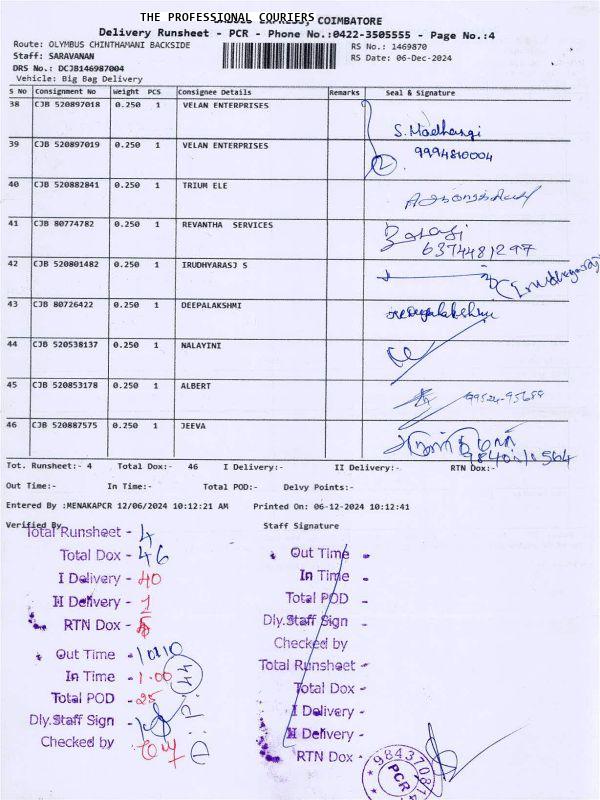 THE PROFESSIONAL COURIERS
COIMBATORE
Delivery Runsheet - PCR - Phone No.:0422-3505555 - Page No.:4
Route: OLYMBUS CHINTHAMANI BACKSIDE
RS No.: 1469870
Staff: SARAVANAN
RS Date: 06-Dec-2024
DRS No.: DCJB146987004
Vehicle: Big Bag Delivery
S No Consignment No Weight PCS Consignee Details Remarks Seal & Signature
38 CJB 520897018 0.250 1 VELAN ENTERPRISES
S. Madhangi
39 CJB 520897019 0.250 1 VELAN ENTERPRISES 9994810004
2
40 CJB 520882841 0.250 1 TRIUM ELE
41 CJB 80774782 0.250 1 REVANTHA SERVICES
6374481297
42 CJB 520801482 0.250 1 IRUDHYARASJ S
43 CJB 80726422 0.250 1 DEEPALAKSHMI
44 CJB 520538137 0.250 1 NALAYINI
45 CJB 520853178 0.250 1 ALBERT
46 CJB 520887575 0.250 1 JEEVA
Tot. Runsheet:- 4 Total Dox:- 46 I Delivery:- II Delivery:- RTN Dox:-
Out Time:- In Time:- Total POD:- Delvy Points:-
Entered By :MENAKAPCR 12/06/2024 10:12:21 AM Printed On: 06-12-2024 10:12:41
Verified By Staff Signature
Total Runsheet - 4
Total Dox - 46
I Delivery - 40
II Delivery - 1
RTN Dox - 5
Out Time - 10.10
In Time - 1.00
Total POD - 25
Dly.Staff Sign -
Checked by -
D.P. 44
Out Time -
In Time -
Total POD -
Dly.Staff Sign -
Checked by
Total Runsheet -
Total Dox -
I Delivery -
II Delivery -
RTN Dox -
PCR